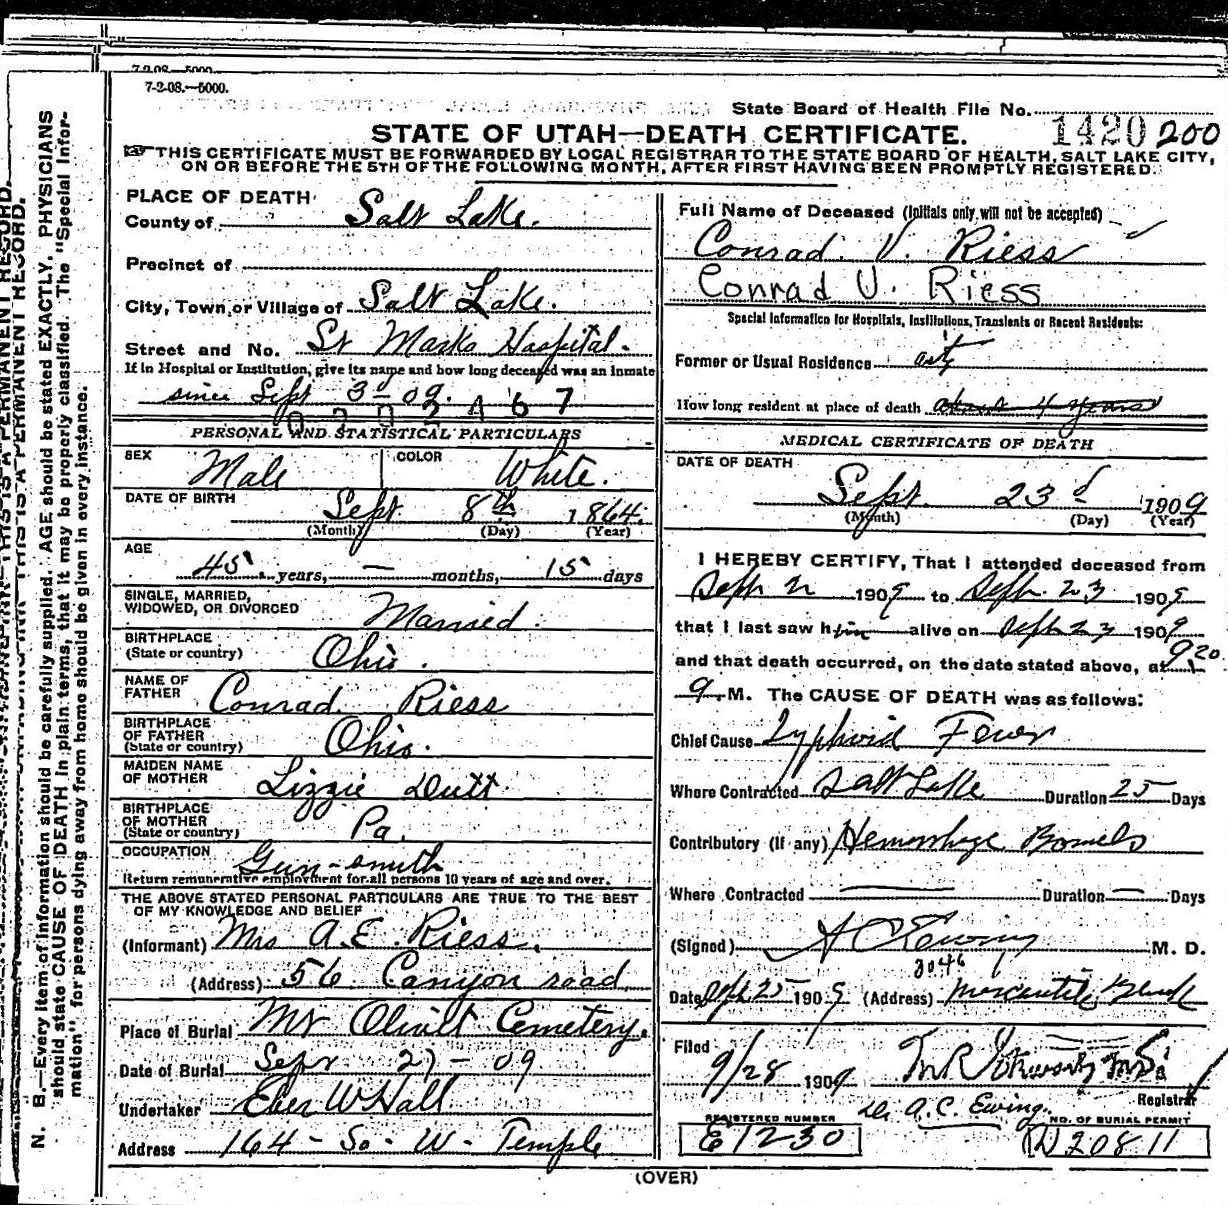 7-2-08.—5000.
7-2-08.—5000.
State Board of Health File No. 1420 200
STATE OF UTAH—DEATH CERTIFICATE.
THIS CERTIFICATE MUST BE FORWARDED BY LOCAL REGISTRAR TO THE STATE BOARD OF HEALTH, SALT LAKE CITY,
ON OR BEFORE THE 5TH OF THE FOLLOWING MONTH, AFTER FIRST HAVING BEEN PROMPTLY REGISTERED.
PLACE OF DEATH
County of Salt Lake.
Precinct of
City, Town or Village of Salt Lake.
Street and No. St Marks Hospital.
If in Hospital or Institution, give its name and how long deceased was an inmate
since Sept 3d 09.
PERSONAL AND STATISTICAL PARTICULARS
SEX Male COLOR White.
DATE OF BIRTH
Sept 8th 1864.
(Month) (Day) (Year)
AGE
45 years, — months, 15 days
SINGLE, MARRIED,
WIDOWED, OR DIVORCED Married.
BIRTHPLACE
(State or country) Ohio.
NAME OF
FATHER Conrad Riess
BIRTHPLACE
OF FATHER
(State or country) Ohio.
MAIDEN NAME
OF MOTHER Lizzie Dutt
BIRTHPLACE
OF MOTHER
(State or country) Pa.
OCCUPATION Gun-smith
Return remunerative employment for all persons 10 years of age and over.
THE ABOVE STATED PERSONAL PARTICULARS ARE TRUE TO THE BEST
OF MY KNOWLEDGE AND BELIEF
(Informant) Mrs A.E. Riess.
(Address) 56 Canyon road
Place of Burial Mt Olivet Cemetery.
Date of Burial Sept 27-09
Undertaker Eber W Hall
Address 164-So-W-Temple
Full Name of Deceased (Initials only will not be accepted)
Conrad. V. Riess
Conrad V. Riess
Special Information for Hospitals, Institutions, Transients or Recent Residents:
Former or Usual Residence city
How long resident at place of death about 4 years
MEDICAL CERTIFICATE OF DEATH
DATE OF DEATH
Sept. 23d 1909
(Month) (Day) (Year)
I HEREBY CERTIFY, That I attended deceased from
Sept 2 1909 to Sept. 23 1909
that I last saw him alive on Sept 23 1909
and that death occurred, on the date stated above, at 9 20
M. The CAUSE OF DEATH was as follows:
Chief Cause Typhoid Fever
Where Contracted Salt Lake Duration 25 Days
Contributory (If any) Hemorrhage Bowels
Where Contracted — Duration — Days
(Signed) A C Ewing M. D.
Date Sept 25 1909 (Address) Mercantile Block
Filed
9/28 1909
Registrar
Dr. A.C. Ewing.
REGISTERED NUMBER
E1230
NO. OF BURIAL PERMIT
D20811
(OVER)
N. B.—Every item of information should be carefully supplied. AGE should be stated EXACTLY. PHYSICIANS
should state CAUSE OF DEATH in plain terms, that it may be properly classified. The "Special Infor-
mation" for persons dying away from home should be given in every instance.
THIS IS A PERMANENT RECORD.
THIS IS A PERMANENT RECORD.